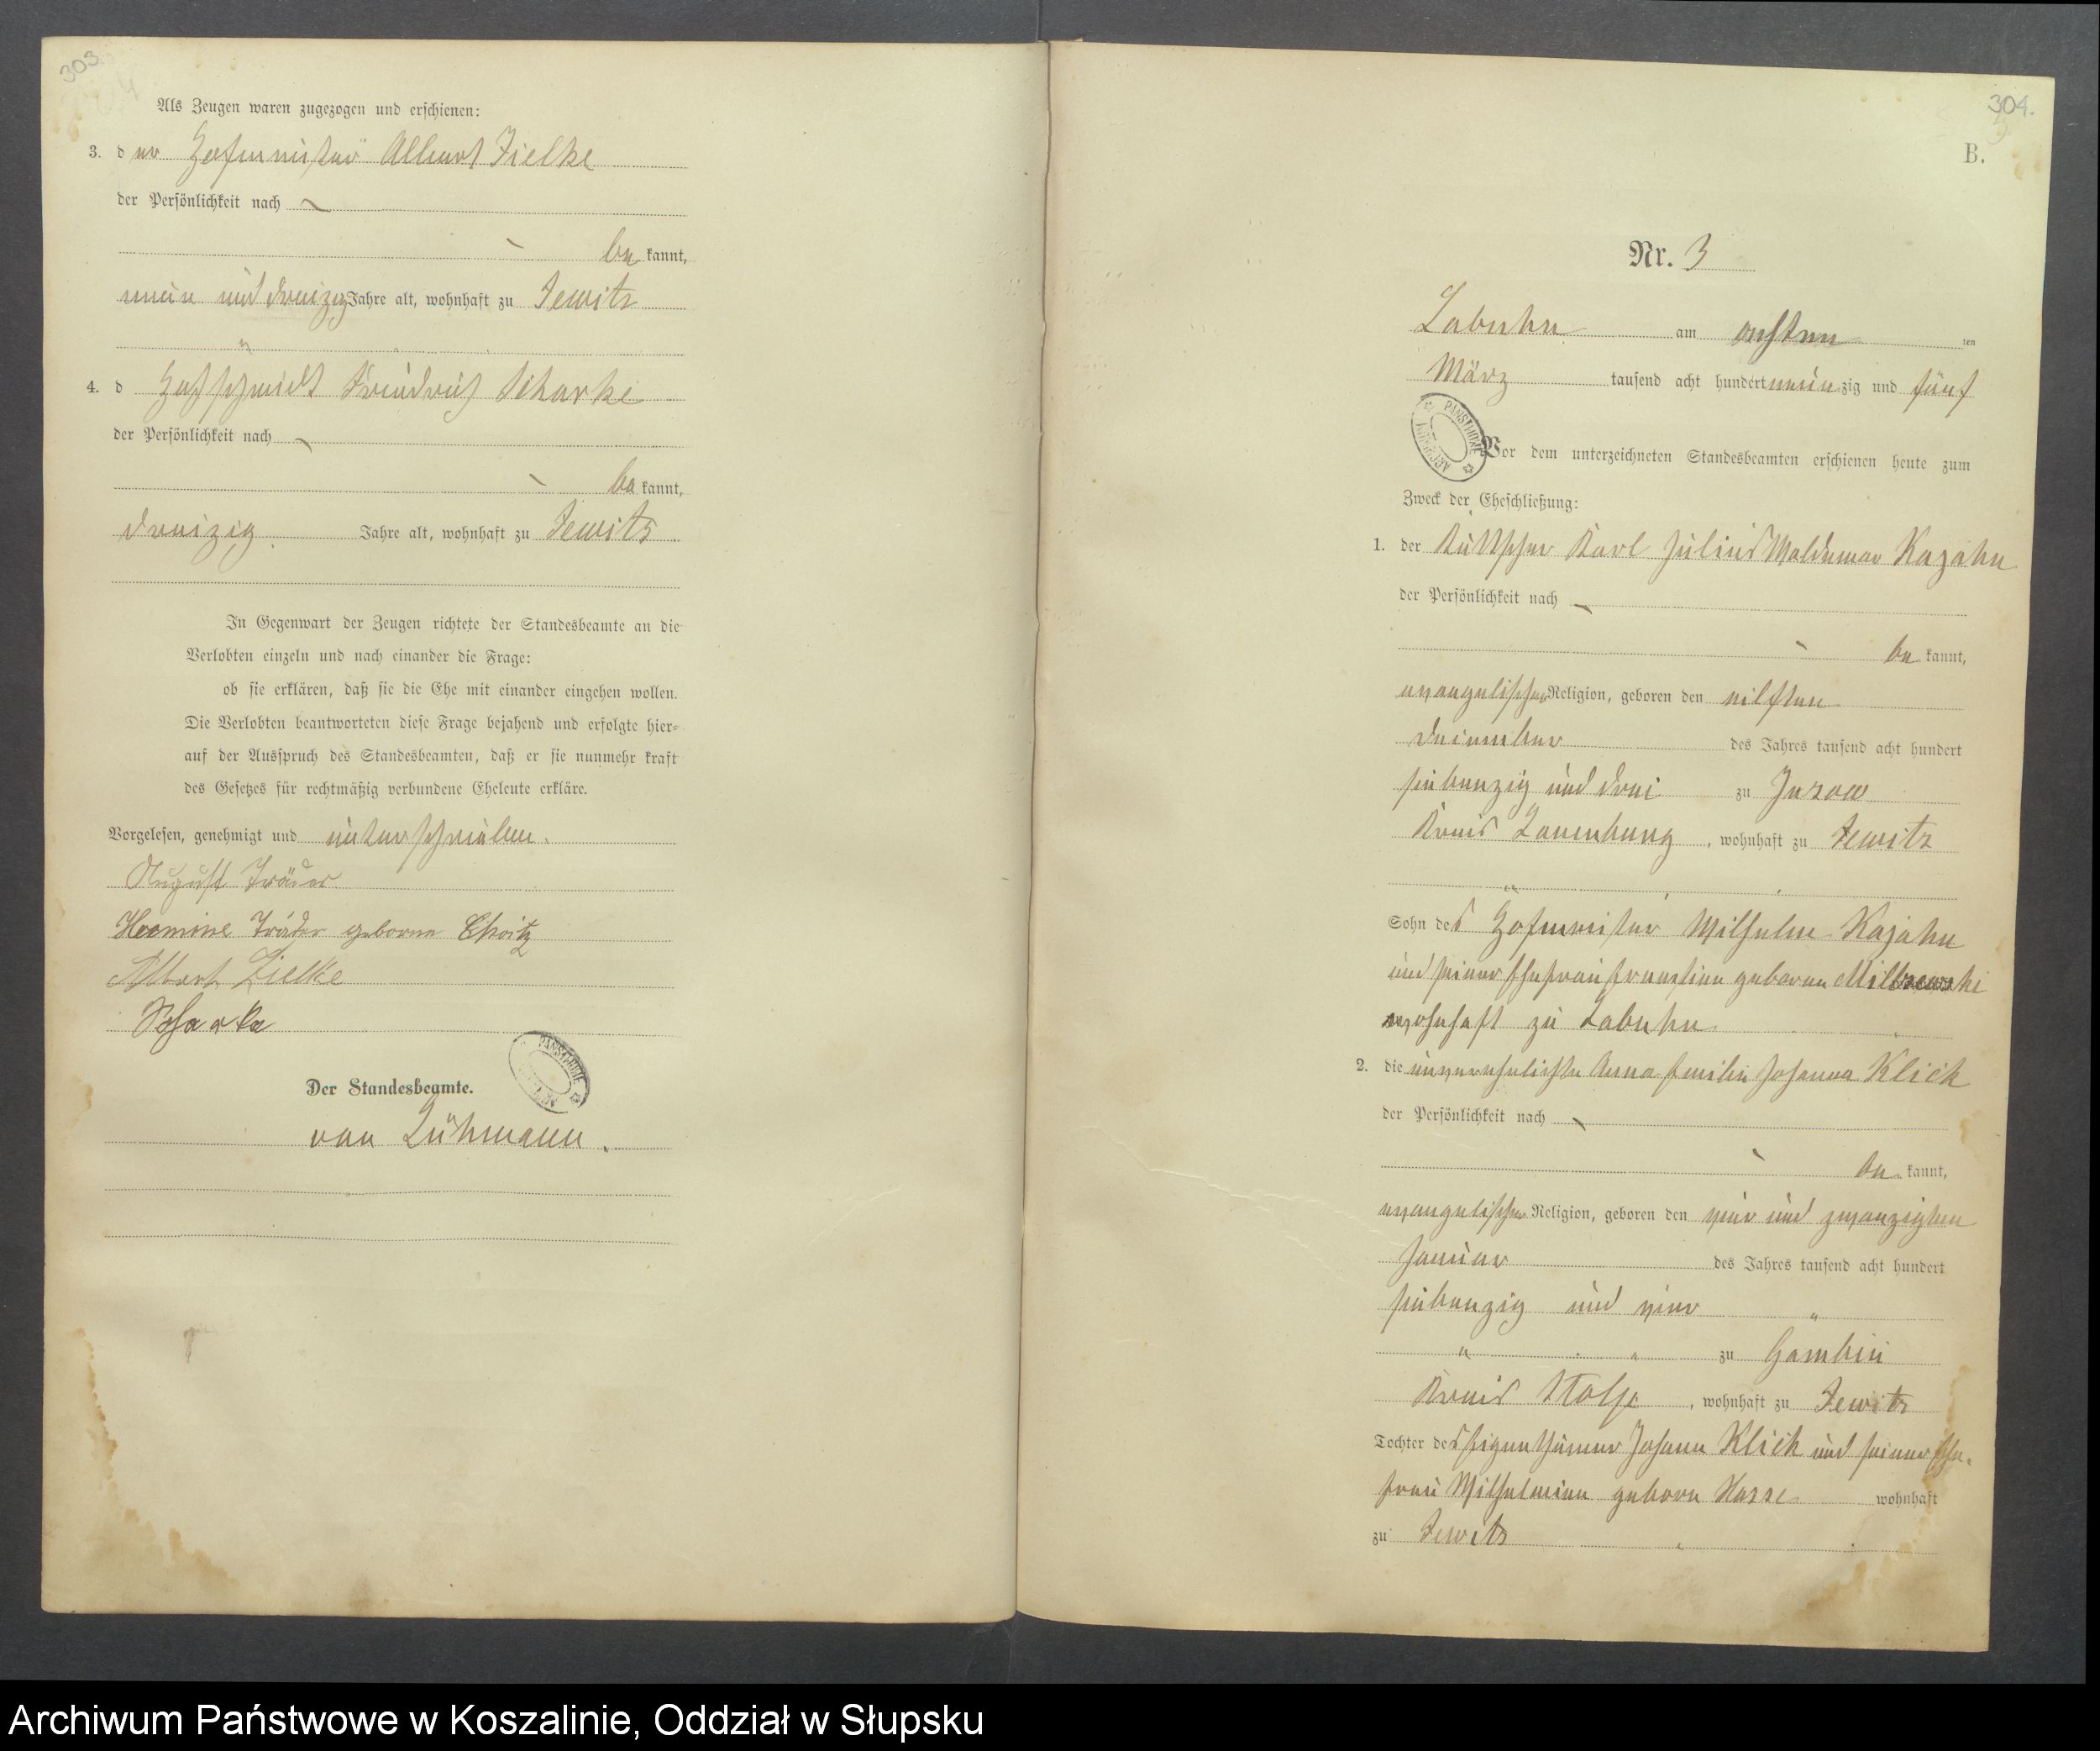 303.
Als Zeugen waren zugezogen und erschienen:
3. der Hofmeister Albert Zielke
der Persönlichkeit nach
be kannt,
neun und dreizig Jahre alt, wohnhaft zu Jewitz
4. d Hofschmidt Friedrich Scharke
der Persönlichkeit nach
be kannt,
dreizig Jahre alt, wohnhaft zu Jewitz
In Gegenwart der Zeugen richtete der Standesbeamte an die
Verlobten einzeln und nach einander die Frage:
ob sie erklären, daß sie die Ehe mit einander eingehen wollen.
Die Verlobten beantworteten diese Frage bejahend und erfolgte hier-
auf der Ausspruch des Standesbeamten, daß er sie nunmehr kraft
des Gesetzes für rechtmäßig verbundene Eheleute erkläre.
Vorgelesen, genehmigt und unterschrieben.
August Träder
Hermine Träder geborne
Albert Zielke
Scharke
Der Standesbeamte.
von Lühmann.
304.
B.
Nr. 3
Labuhn am ersten ten
März tausend acht hundert neun zig und fünf
Vor dem unterzeichneten Standesbeamten erschienen heute zum
Zweck der Eheschließung:
1. der Kutscher Karl Julius Waldemar Kazahn
der Persönlichkeit nach
be kannt,
evangelischer Religion, geboren den eilften
Dezember des Jahres tausend acht hundert
siebenzig und drei zu
Kreis Lauenburg, wohnhaft zu Jewitz
Sohn des Hofmeister Wilhelm Kazahn
und seiner Ehefrau Ernestine geborene
wohnhaft zu Labuhn
2. die unverehelichte Anna Emilie Johanna Klick
der Persönlichkeit nach
be kannt,
evangelischer Religion, geboren den vier und zwanzigsten
Januar des Jahres tausend acht hundert
siebenzig und vier
zu Gambin
Kreis Stolp, wohnhaft zu Jewitz
Tochter des Eigenthümer Johann Klick und seiner Ehe-
frau Wilhelmine geborn Hasse wohnhaft
zu Jewitz
Archiwum Państwowe w Koszalinie, Oddział w Słupsku